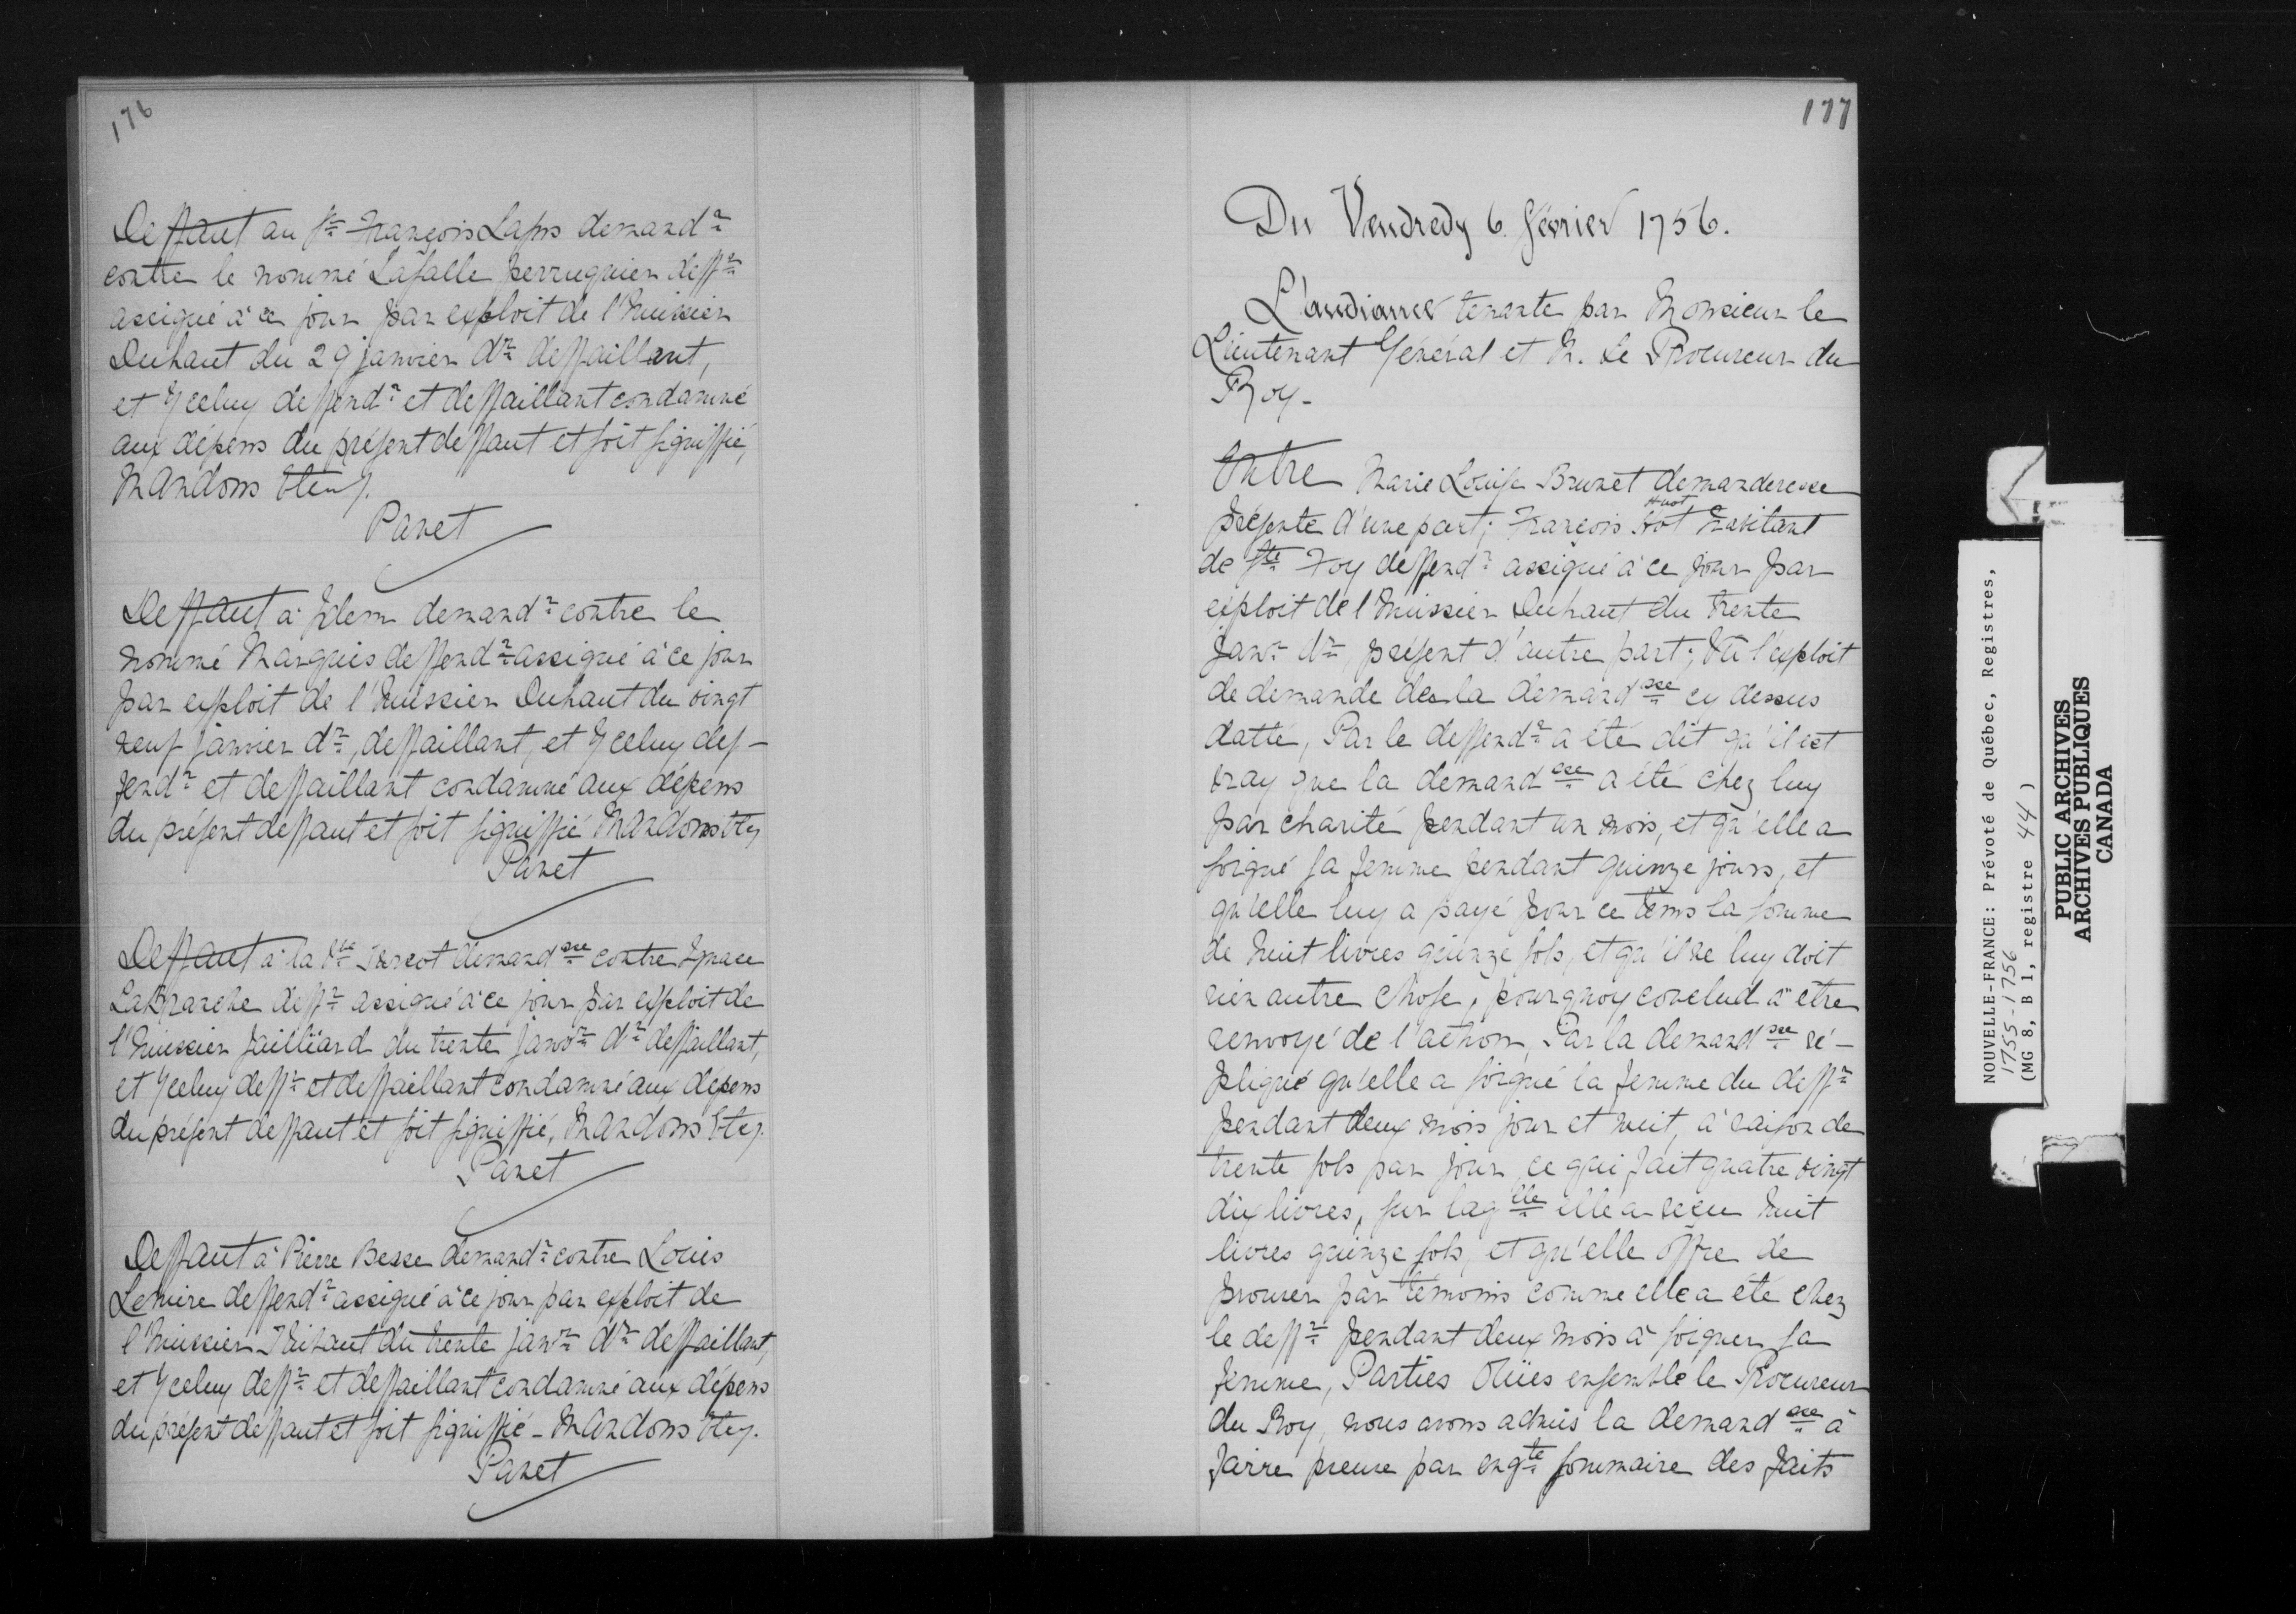 176
Deffaut au Sr. François Laps demandr.
contre le nommé Lasalle perruquier deffr.
assigné à ce jour par exploit de l'Huissier
Duhaut du 29 janvier dr. deffaillant,
et Yceluy deffendr. et deffaillant condamné
aux dépens du présent deffaut et soit signiffié,
Mandons Etcy.
Panet
Deffaut à Idem demandr. contre le
nommé Marquis deffendr. assigné à ce jour
par exploit de l'Huissier Duhaut du vingt
neuf janvier dr., deffaillant, et Yceluy def-
fendr. et deffaillant condamné aux dépens
du présent deffaut et soit signiffié Mandons Etcy
Panet
Deffaut à la Ve. demandsse. contre Ignace
Lamarche deffr. assigné à ce jour par exploit de
l'Huissier Jailliard du trente janvr. dr. deffaillant,
et Yceluy deffr. et deffaillant condamné aux dépens
du présent deffaut et soit signiffié, Mandons Etcy.
Panet
Deffaut à Pierre Besse demandr. contre Louis
Lemire deffendr. assigné à ce jour par exploit de
l'Huissier du trente janvr. dr. deffaillant,
et Yceluy deffr. et deffaillant condamné aux dépens
du présent deffaut et soit signiffié - Mandons Etcy.
Panet
177
Du Vendredy 6. février 1756.
L'audiance tenante par Monsieur le
Lieutenant Général et M. Le Procureur du
Roy-
Entre Marie Louise Brunet demanderesse
Huot
présente d'une part; François Hot habitant
de Ste. Foy deffendr. assigné à ce jour par
exploit de l'Huissier Duhaut du trente
janvr. dr., présent d'autre part; Vû l'exploit
de demande de la demandsse. cy dessus
datté, Par le deffendr. a été dit qu'il est
vray que la demandsse. a été chez luy
par charité pendant un mois, et qu'elle a
soigné sa femme pendant quinze jours, et
qu'elle luy a payé pour ce tems la somme
de huit livres quinze sols, et qu'il ne luy doit
rien autre chose, pourquoy conclud à être
renvoyé de l'action, Par la demandsse. ré-
pliqué qu'elle a soigné la femme du deffr.
pendant deux mois jour et nuit, à raison de
trente sols par jour ce qui fait quatre vingt
dix livres, sur laqlle. elle a reçu huit
livres quinze sols, et qu'elle offre de
prouver par témoins comme elle a été chez
le deffr. pendant deux mois à soigner sa
femme, Parties Oüies ensemble le Procureur
du Roy, nous avons admis la demandsse. à
faire preuve par enqte. sommaire des faits
NOUVELLE-FRANCE: Prévoté de Québec, Registres,
1755-1756
(MG 8, B 1, registre 44)
PUBLIC ARCHIVES
ARCHIVES PUBLIQUES
CANADA